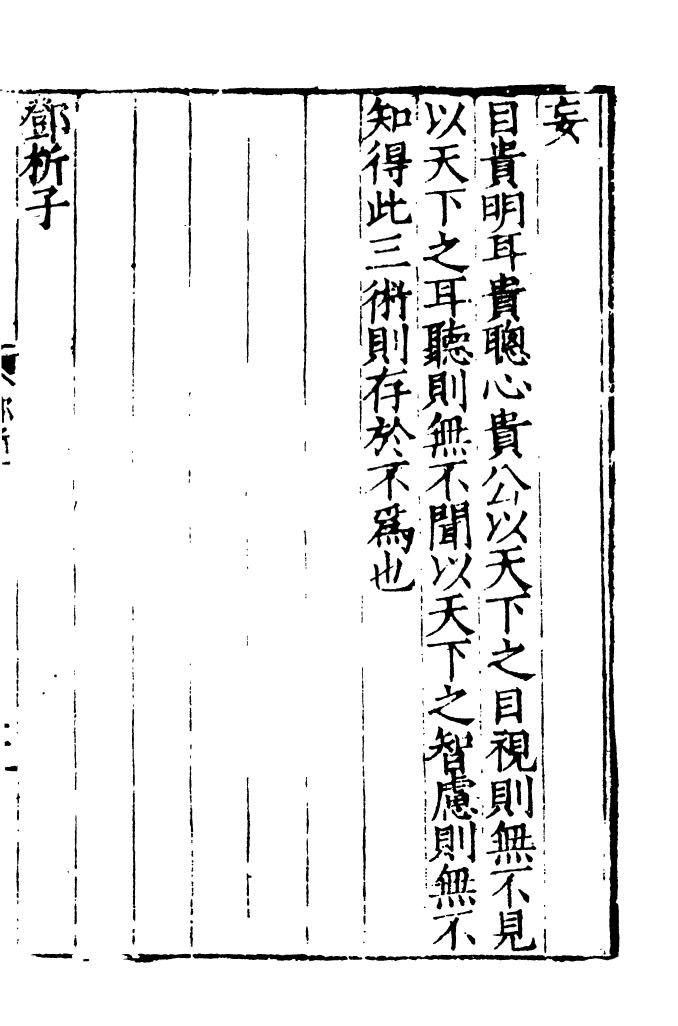 妄
目貴明耳貴聰心貴公以天下之目視則無不見
以天下之耳聽則無不聞以天下之智慮則無不
知得此三術則存於不爲也
鄧析子